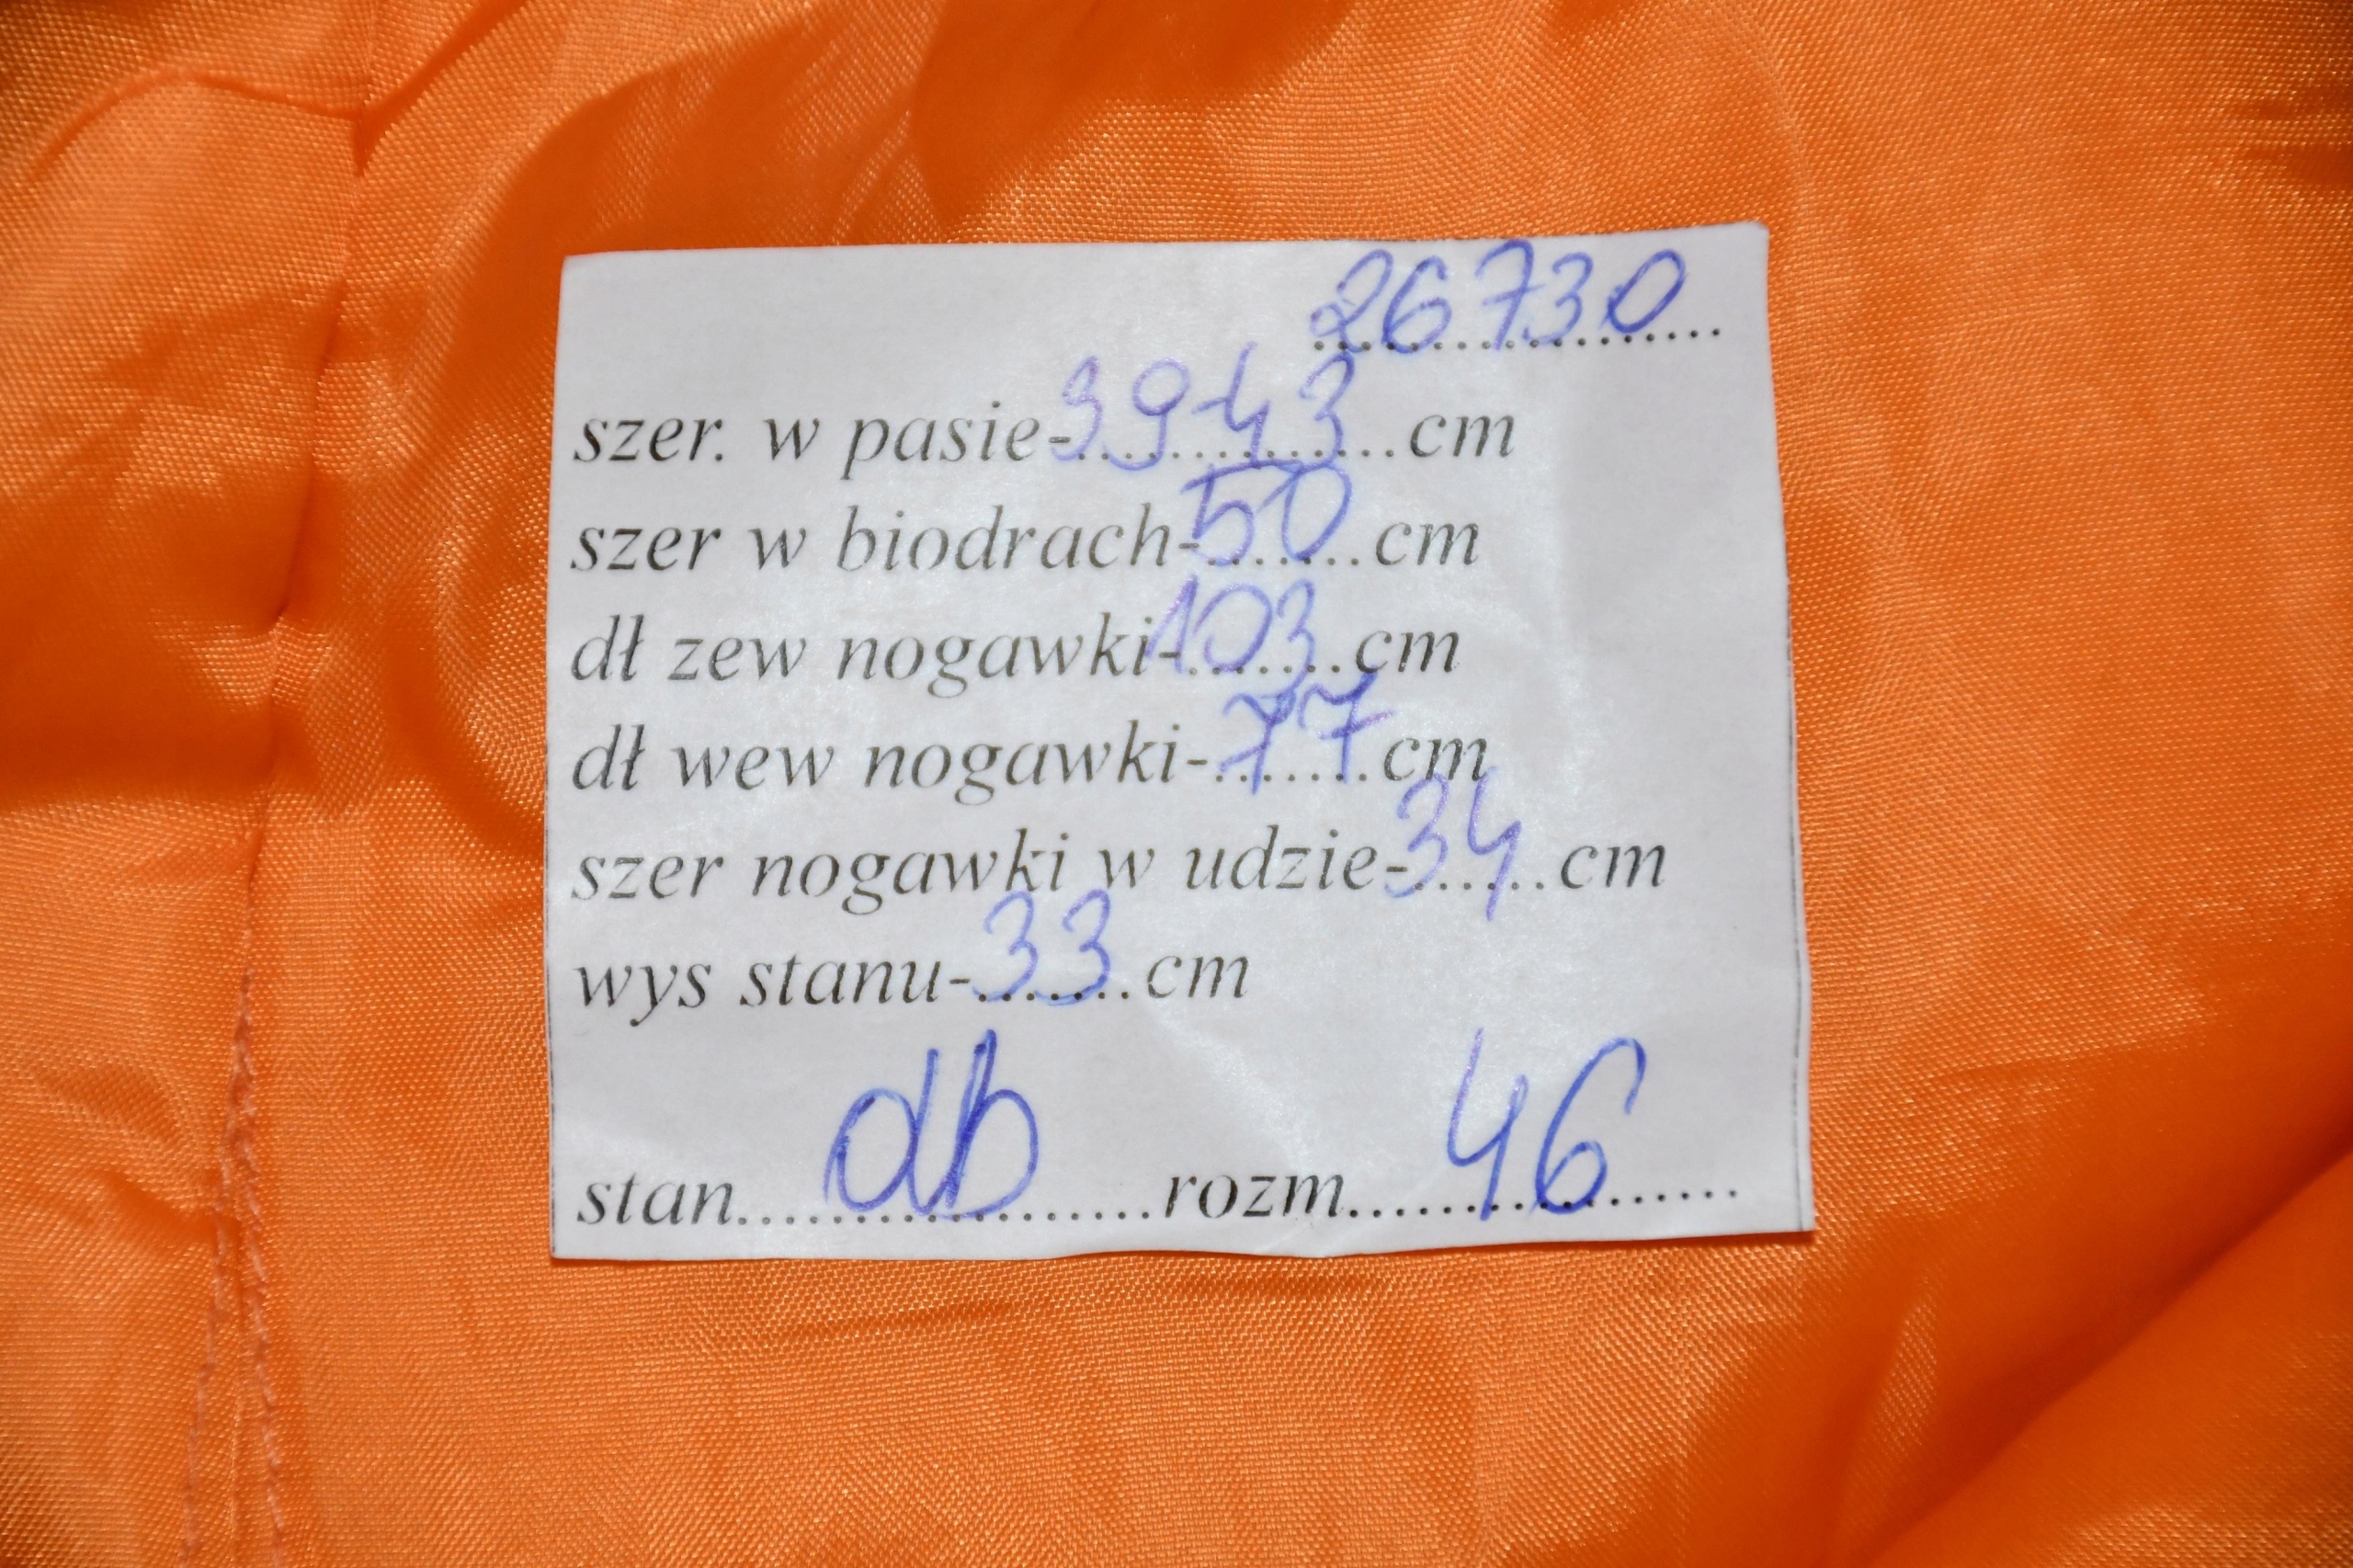 26730
szer. w pasie-39-43cm
szer w biodrach-50cm
dł zew nogawki-103cm
dł wew nogawki-77cm
szer nogawki w udzie-34cm
wys stanu-33cm
stan....db....rozm....46....